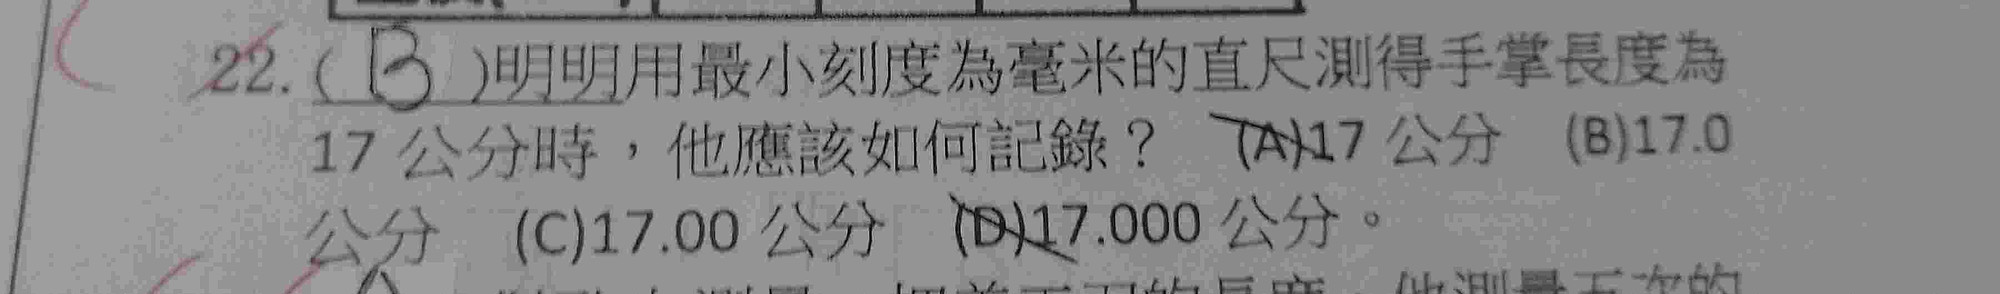 22. ( B )明明用最小刻度為毫米的直尺測得手掌長度為
17 公分時，他應該如何記錄？ (A)17 公分 (B)17.0
公分 (C)17.00 公分 (D)17.000 公分。